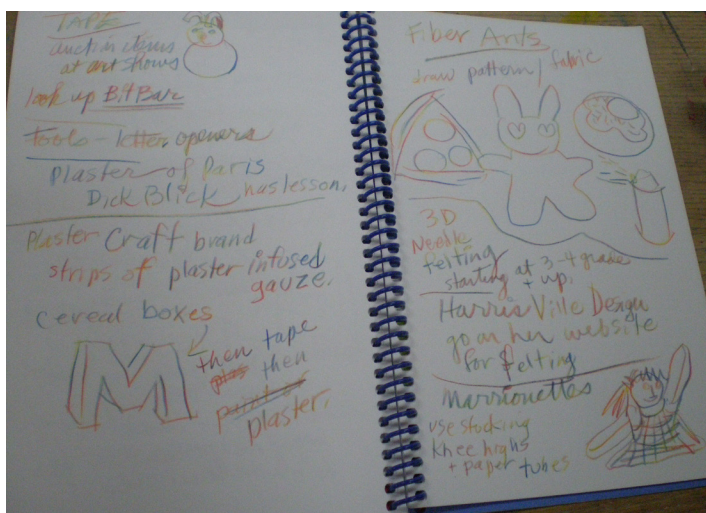 TAPE
auction items
at art shows
look up BitBar
Tools - letter openers
Plaster of Paris
Dick Blick has lesson.
Plaster Craft brand
strips of plaster infused
gauze.
cereal boxes
then tape
then
paint or
plaster.
Fiber Arts
draw pattern / fabric
3D
Needle
felting
starting at 3-4 grade
+ up.
Harris Ville Design
go on her website
for felting
Marrionettes
use stocking
knee highs
+ paper tubes